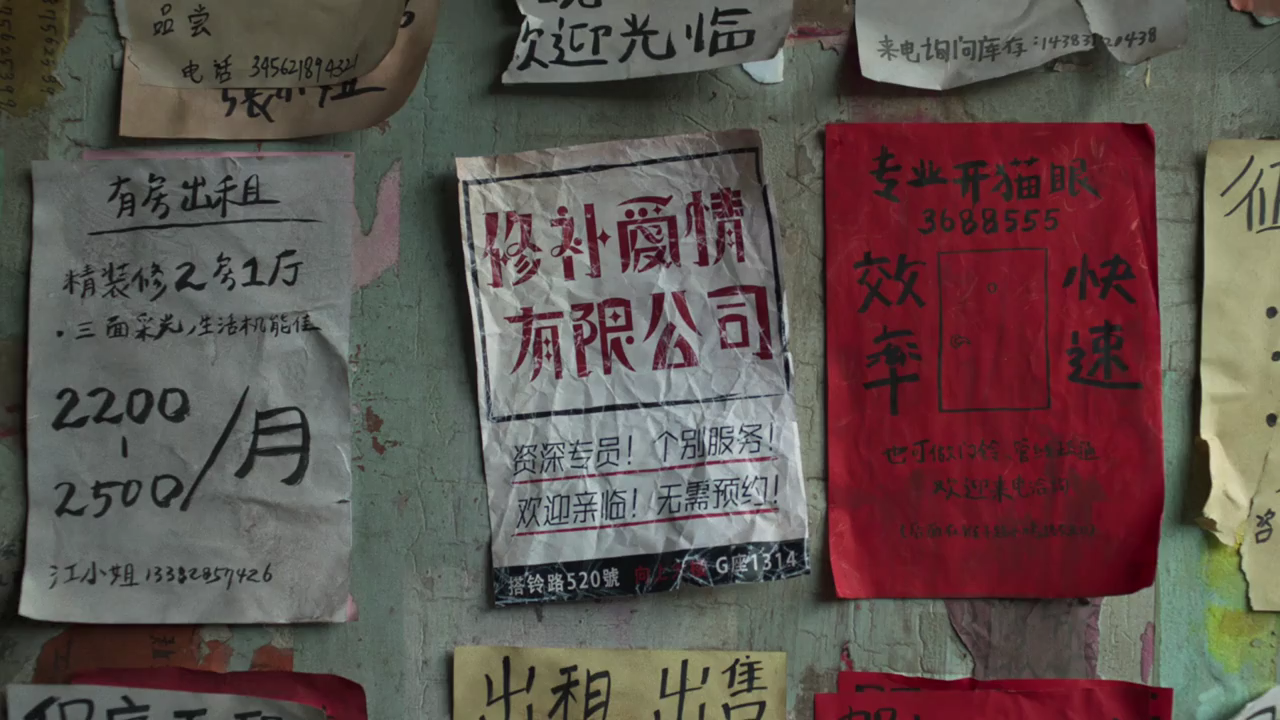 品尝
电话 34562189432
欢迎光临
来电询问库存:14383820438
有房出租
精装修2房1厅
·三面采光,生活机能佳
2200
-
2500/月
江小姐13382857426
修补爱情
有限公司
资深专员! 个别服务!
欢迎亲临! 无需预约!
搭铃路520號 G座1314
专业开猫眼
3688555
效率
快速
欢迎来电洽询
出租 出售